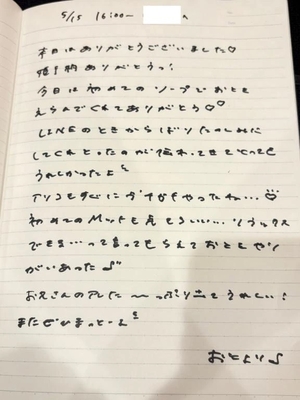 5/15 16:00〜
本日はありがとうございました♡
指名ありがとうっ!
今日は初めてのソープでおとを
えらんでくれてありがとう♡♡
LINEのときからばりたのしみに
してくれとったのが伝わってきてとっても
うれしかったよ
すぐに
初めてのマットも
リラックス
できる…って言ってもらえておととやり
がいあった♪
お兄さんのアレた〜っぷり出てうれしい!
またぜひまっとーよ
おとより♪